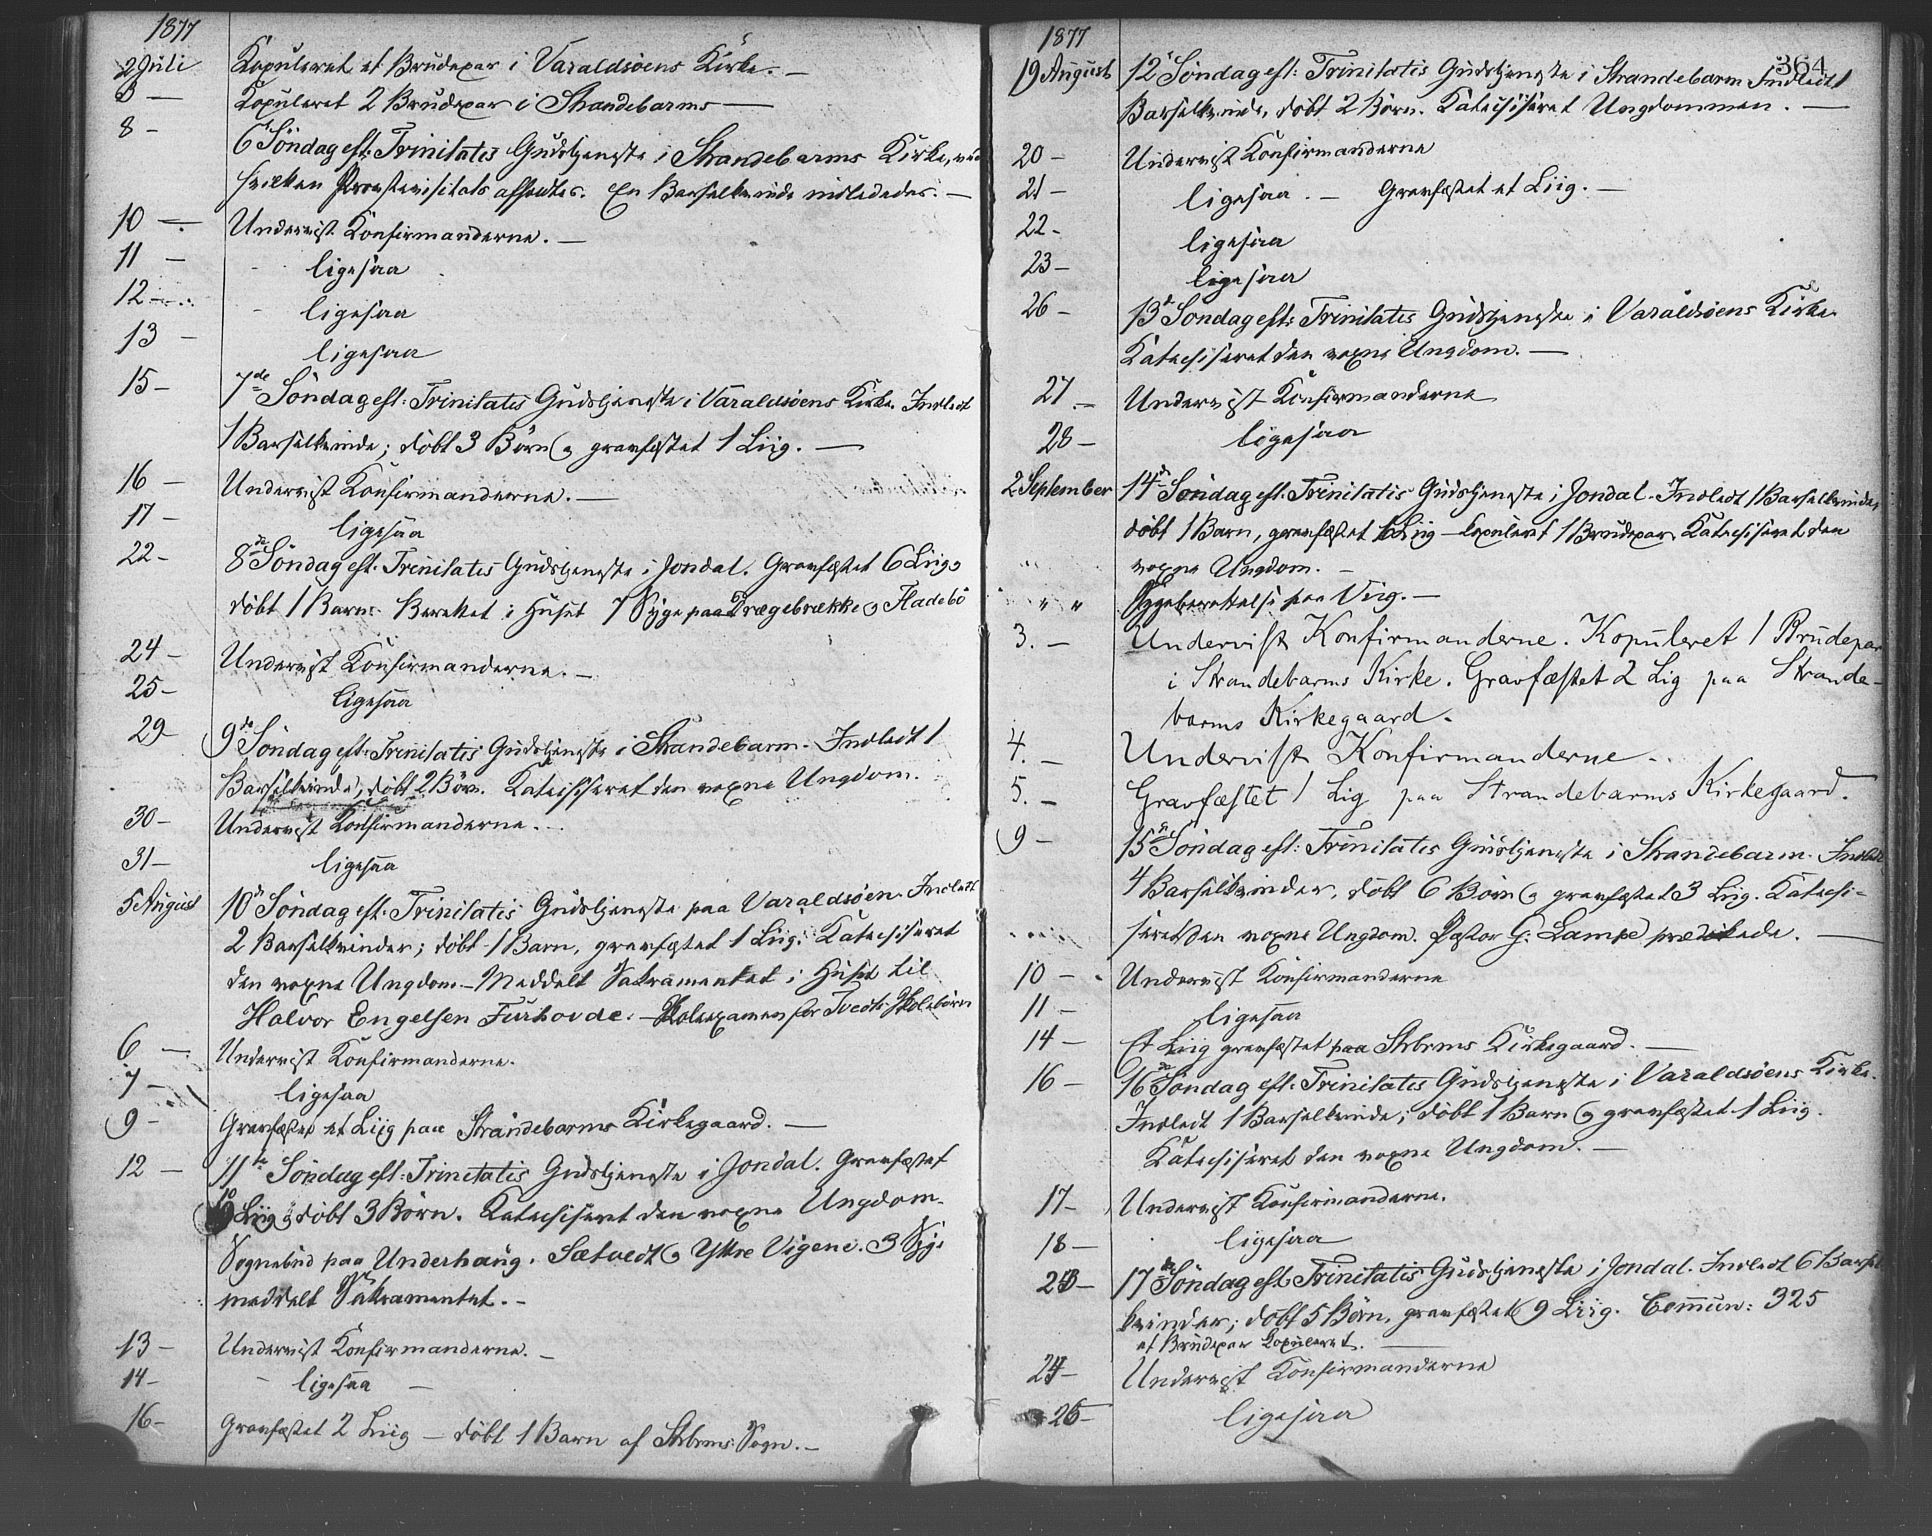 1877
2 Juli Kopuleret et Brudepar i Varaldsöens Kirke. —
3 — Kopuleret 2 Brudepar i Strandebarms —
8 - 6te Söndag eft: Trinitatis Gudstjeneste i Strandebarms Kirke, ved
hvilken Provstevisitats afholdtes. En Barselkvinde indlededes. —
10 — Undervist Konfirmanderne. —
11 — ligesaa
12 — ligesaa
13 — ligesaa
15 - 7de Söndag eft: Trinitatis Gudstjeneste i Varaldsöens Kirke. Indledt
1 Barselkvinde; döbt 3 Börn og gravfæstet 1 Liig. —
16 — Undervist Konfirmanderne. —
17 — ligesaa
22 - 8de Söndag eft. Trinitatis Gudstjeneste i Jondal. Gravfæstet 6 Liig,
döbt 1 Barn. Berettet i Huset 7 Syge paa Brægebrække og Fladebö
24 — Undervist Konfirmanderne. —
25 - ligesaa
29 - 9de Söndag eft: Trinitatis Gudstjeneste i Strandebarm. Indledt 1
Barselkvinde, döbt 2 Börn. Katechiseret den voxne Ungdom.
30 - Undervist Konfirmanderne. —
31 - ligesaa
5 August 10de Söndag eft. Trinitatis Gudstjeneste paa Varaldsöen. Indledt
2 Barselkvinder; döbt 1 Barn, gravfæstet 1 Liig. Katechiseret
den voxne Ungdom. — Meddelt Sakramentet i Huset til
Halvor Engelsen Furhovde. — Skoleexamen for Tvedts Skolebörn
6 — Undervist Konfirmanderne.
7 — ligesaa
9 - Gravfæstet et Liig paa Strandebarms Kirkegaard. —
12 — 11te Söndag eft: Trinitatis Gudstjeneste i Jondal. Gravfæstet
10 Liig, döbt 3 Börn. Katechiseret den voxne Ungdom.
Sognebud paa Underhaug, Sætvedt og Yttre Vigene. 3 Syge
meddelt Sakramentet. —
13 — Undervist Konfirmanderne. —
14 - ligesaa —
16 - Gravfæstet 2 Liig — döbt 1 Barn af Strbrms Sogn. —
1877
364
19 August 12te Söndag eft: Trinitatis Gudstjeneste i Strandebarm Indledt 1
Barselkvinde, döbt 2 Börn. Katechiseret Ungdommen. —
20 - Undervist Konfirmanderne
21 - ligesaa. — Gravfæstet et Liig. —
22 - ligesaa
23 - ligesaa
26 - 13de Söndag eft: Trinitatis Gudstjeneste i Varaldsöens Kirke.
Katechiseret den voxne Ungdom. —
27 - Undervist Konfirmanderne
28 - ligesaa
2 September 14de Söndag eft. Trinitatis Gudstjeneste i Jondal. Indledt 1 Barselkvinde,
döbt 1 Barn, gravfæstet Liig — kopuleret 1 Brudepar. Katechiseret den
voxne Ungdom. —
" " Sygeberettelse paa Virg. —
3. — Undervist Konfirmanderne. Kopuleret 1 Brudepar
i Strandebarms Kirke. Gravfæstet 2 Lig paa Strande-
barms Kirkegaard.
4. — Undervist Konfirmanderne.
5. — Gravfæstet 1 Lig paa Strandebarms Kirkegaard.
9 - 15de Söndag eft: Trinitatis Gudstjeneste i Strandebarm. Indledt
4 Barselkvinder, döbt 6 Börn og gravfæstet 3 Liig. Katechi-
seret den voxne Ungdom. Pastor G. Lampe prædikede. —
10 - Undervist Konfirmanderne
11 - ligesaa
14 - Et Liig gravfæstet paa Strbrms Kirkegaard. —
16 - 16de Söndag eft: Trinitatis Gudstjeneste i Varaldsöens Kirke.
Indledt 1 Barselkvinde; döbt 1 Barn og gravfæstet 1 Liig.
Katechiseret den voxne Ungdom. —
17 - Undervist Konfirmanderne.
18 - ligesaa
23 - 17de Söndag eft. Trinitatis Gudstjeneste i Jondal. Indledt 6 Barsel
kvinder; döbt 5 Börn, gravfæstet 9 Liig. Commun: 325
et Brudepar kopuleret. —
24 - Undervist Konfirmanderne
25 - ligesaa